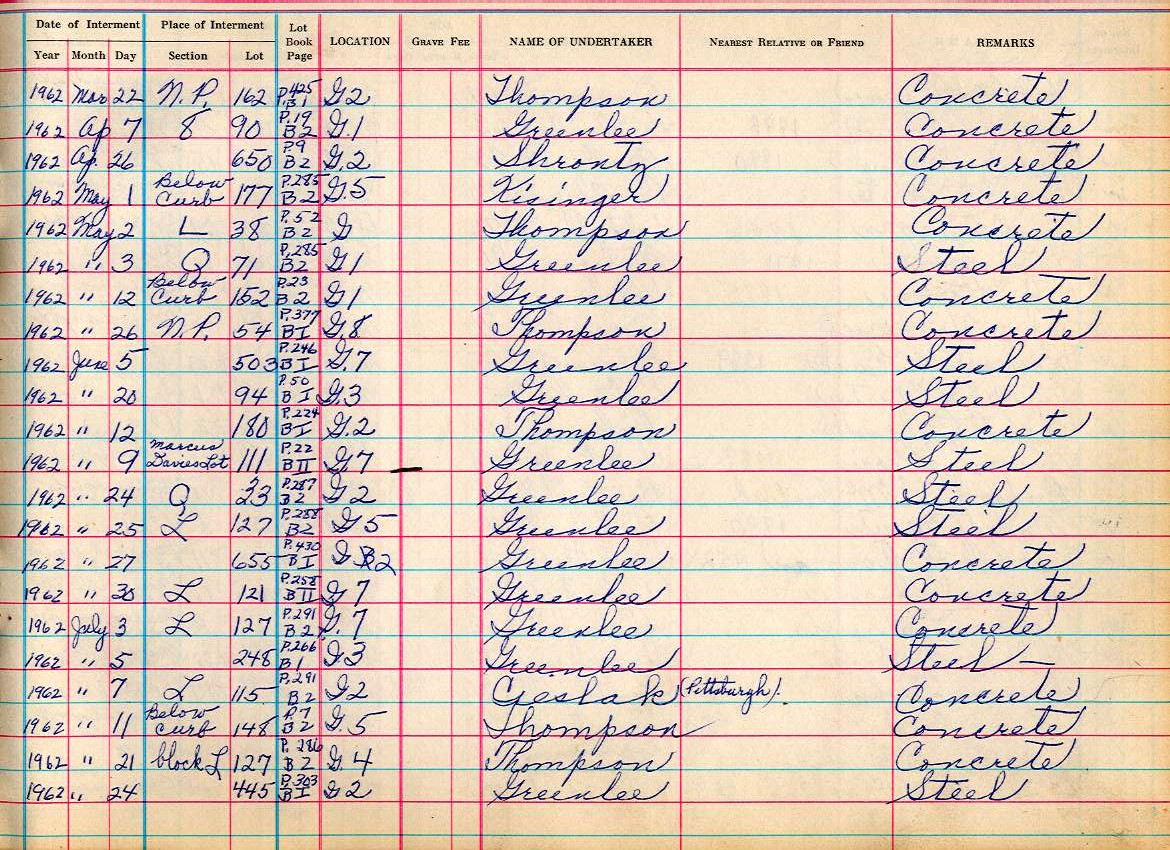 Date of Interment Place of Interment Lot Book Page LOCATION GRAVE FEE NAME OF UNDERTAKER NEAREST RELATIVE OR FRIEND REMARKS
Year Month Day Section Lot
1962 Mar 22 N.P. 162 P.425 B1 G2 Thompson Concrete
1962 Ap 7 8 90 P.19 B2 G.1 Greenlee Concrete
1962 Ap. 26 650 P.9 B2 G.2 Shrontz Concrete
1962 May 1 Below Curb 177 P.285 B2 G.5 Kisinger Concrete
1962 May 2 L 38 P.52 B2 G Thompson Concrete
1962 " 3 Q 71 P.285 B2 G1 Greenlee Steel
1962 " 12 Below Curb 152 P.23 B2 G1 Greenlee Concrete
1962 " 26 N.P. 54 P.377 BI G.8 Thompson Concrete
1962 June 5 503 P.246 BI G.7 Greenlee Steel
1962 " 20 94 P.50 BI G.3 Greenlee Steel
1962 " 12 180 P.224 BI G.2 Thompson Concrete
1962 " 9 Marcus Davies Lot 111 P.22 BII G.7 Greenlee Steel
1962 " 24 Q 23 P.287 B2 G2 Greenlee Steel
1962 " 25 L 127 P.288 B2 G5 Greenlee Steel
1962 " 27 655 P.430 BI G 2 Greenlee Concrete
1962 " 30 L 121 P.258 BII G7 Greenlee Concrete
1962 July 3 L 127 P.291 B2 G.7 Greenlee Concrete
1962 " 5 248 P.266 B1 G3 Greenlee Steel —
1962 " 7 L 115 P.291 B2 G2 Cieslak (Pittsburgh). Concrete
1962 " 11 Below Curb 148 P.7 B2 G.5 Thompson Concrete
1962 " 21 block L 127 P.286 B2 G.4 Thompson Concrete
1962 " 24 445 P.303 BI G2 Greenlee Steel